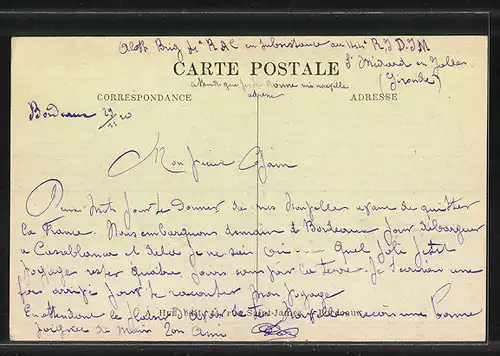 Brig 4e RAC en subsistance au 144e R I D-I M
St Médard en Jalles
CARTE POSTALE
(Gironde)
attend que je te donne ma nouvelle
adresse
CORRESPONDANCE ADRESSE
Bordeaux 29/11 20
Mon vieux
Deux mots pour te donner de mes nouvelles avant de quitter
la France. Nous embarquons demain à Bordeaux pour débarquer
à Casablanca et delà je ne sais où --- Quel joli petit
voyage rester quatre jours sans voir la terre. Je t'écrirai une
fois arrivé pour te raconter mon voyage
En attendant le plaisir d'avoir de tes nouvelles reçois une bonne
poignée de main Ton ami
St-James, Bordeaux